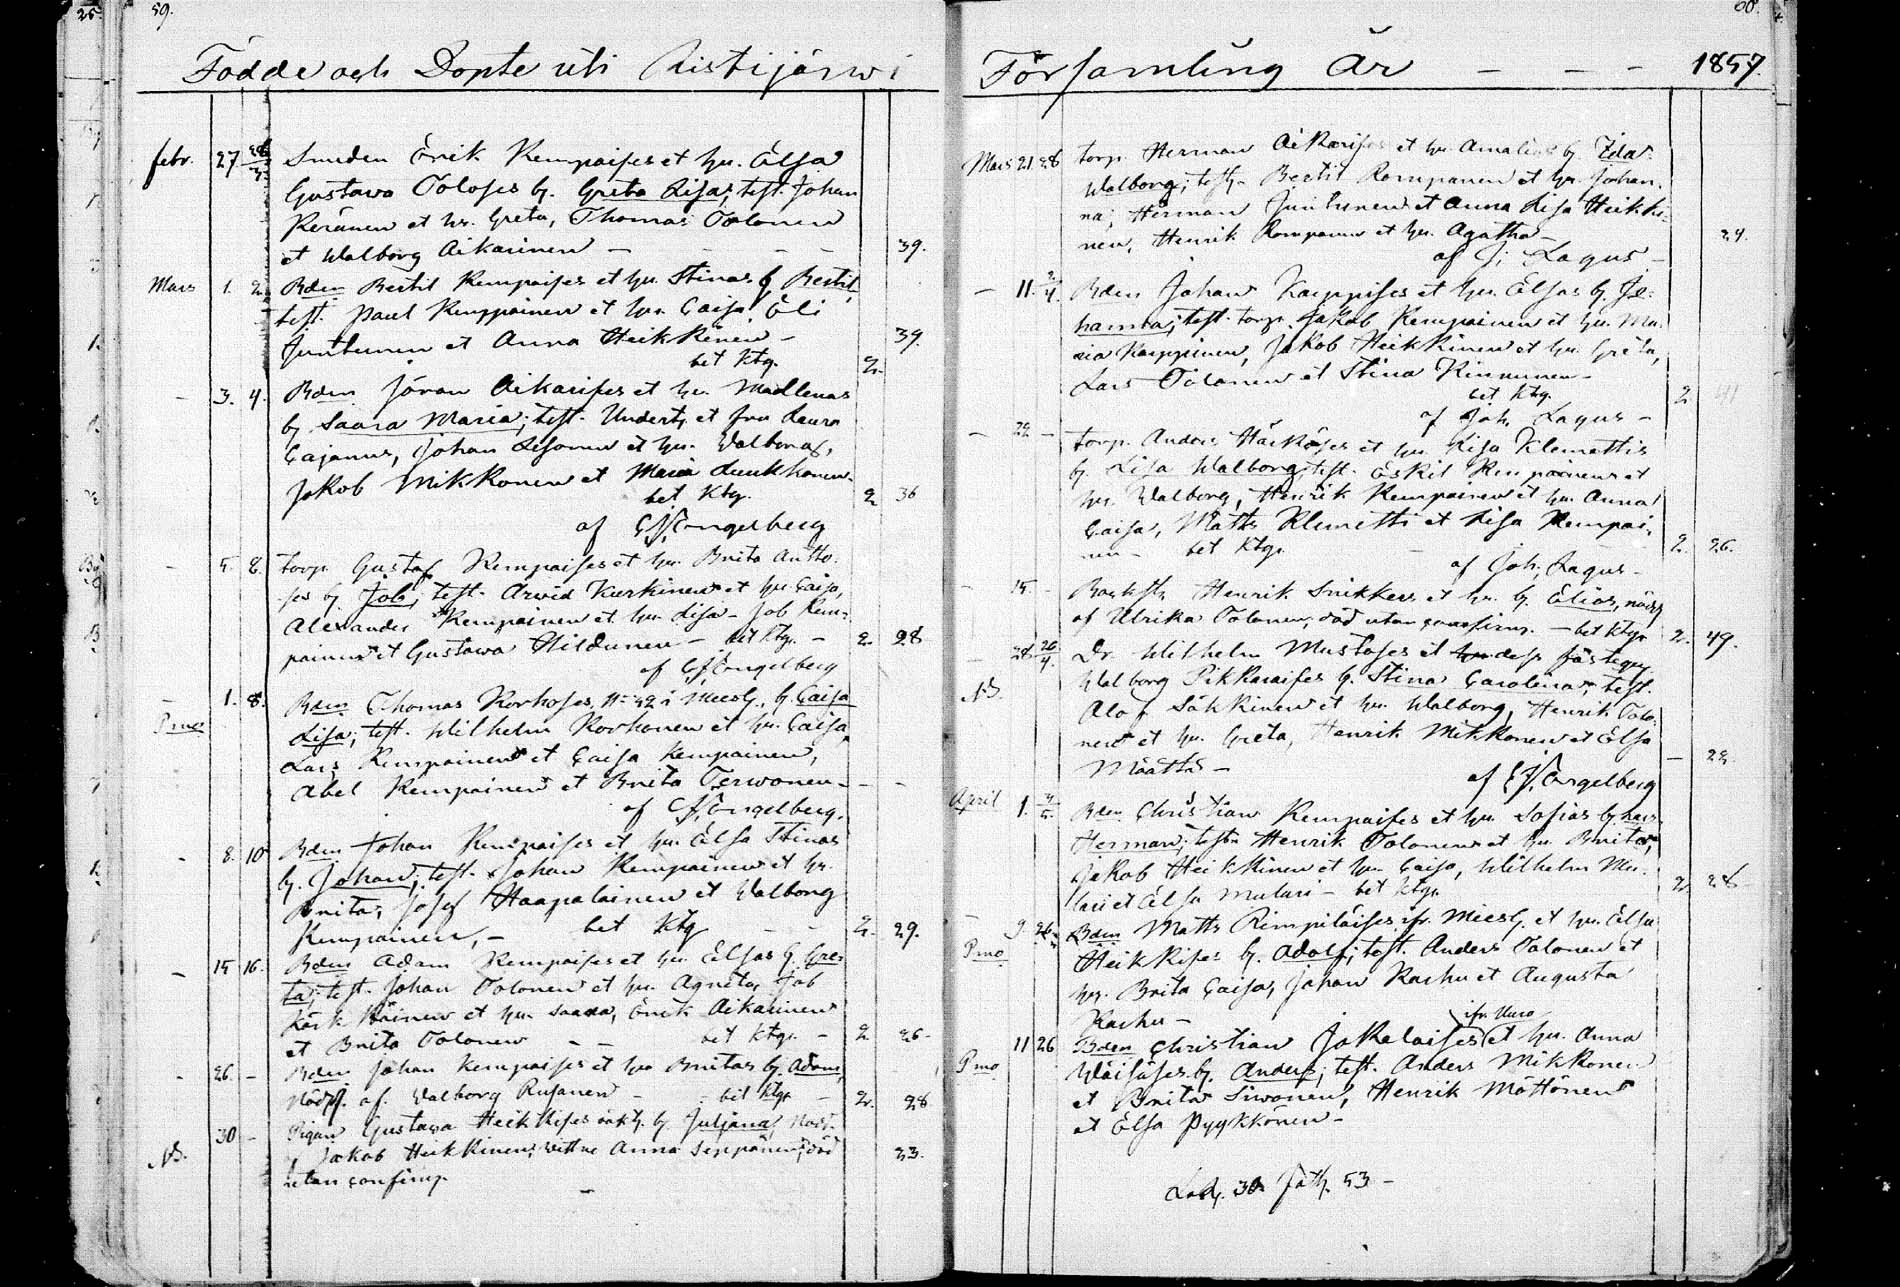 59.
Födde och Döpte uti Ristijärwi
febr. 27 28 Smeden Erik Kempaises et hu. Elsa
Gustawa Toloses b. Greta Lisa; test. Johan
Keränen et hr. Greta, Thomas Tolonen
et Walborg Aikarinen — 39.
Mars 1. 2. Bden Bertil Kempaises et hu. Stinas b. Bertil,
test. Paul Kemppainen et hu. Caisa Eli
Juntunen et Anna Heikkinen — 39.
bet Ktg. 2.
- 3. 4. Bden Jöran Aikarises et hu. Madlenas
b. Saara Maria; test. Undert. et fru Laura
Cajanus, Johan Lesonen et hu. Walborg,
Jakob Mikkonen et Maria Lunkkonen.
bet Ktg. 2 36
af C.J. Engelberg
- 5. 8. torp. Gustaf Kempaises et hu. Brita Antto-
ses b. Job; test. Arvid Kurkinen et hu. Caisa,
Alexander Kempainen et hu. Lisa - Job Kem-
painen et Gustawa Hildunen - bet Ktg. - 2. 28
af C.J. Engelberg
1. 8. Bden Thomas Korhoses, No 42 i Miesl., b. Caisa
Pmo Lisa; test. Wilhelm Korhonen et hu. Caisa,
Lars Kempainen et Caisa Kempainen,
Abel Kempainen et Brita Terwonen — —
af C.J. Engelberg.
- 8. 10 Bden Johan Kempaises et hu. Elsa Stinas
b. Johan; test. Johan Kempainen et hr.
Brita, Josef Haapalainen et Walborg
Kempainen, - bet Ktg 2. 29.
- 15 16. Bden Adam Kempaises et hu. Elsas b. Gre-
ta; test. Johan Tolonen et hu. Agneta, Job
et hu. Saara, Erik Aikarinen
et Brita Tolonen — bet Ktg. - 2 26-
- 26. - Bden Johan Kempaises et hu Britas b. Adam,
Nödp. af Walborg Rusanen - bet Ktg. - 2. 28
30 - Pigan Gustawa Heikkises oäkt. b. Juliana, Nöd-
NB. Jakob Heikkinen; wittne Anna Seppänen; död 23.
utan confirm.
60.
Församling År - - - 1857.
Mars 21 28 torp. Herman Aikarises et hu. Amalias b. Ida
Walborg; test. Bertil Kempanen et hu. Johan-
na, Herman Juntunen et Anna Lisa Heikki-
nen, Henrik Kompanen et hu. Agatha - 24.
af J. Lagus -
- 11. 2/4. Bden Johan Karppises et hu. Elsas b. Jo-
hanna; test. torp. Jakob Kempainen et hu. Ma-
ria Karppinen, Jakob Heikkinen et hu. Greta,
Lars Tolonen et Stina Kinnunen -
bet Ktg. 2 41
af Joh. Lagus -
- 22 - torp. Anders Härköses et hu. Lisa Klemettis
b. Lisa Walborg; test. Eskil Kempainen et
hr. Walborg, Henrik Kempainen et hu. Anna
Caisa, Matts Klemetti et Lisa Kempai-
nen - bet Ktg. 2. 26.
af Joh. Lagus -
- 15. - Henrik Snikkers et hu. b. Elias, nödp
af Ulrika Tolonen, död utan confirm. - bet Ktg. 2. 49.
- 28. 26/4. Dr. Wilhelm Mustoses et dess fästeqv.
NB Walborg Pikkaraises b. Stina Carolina; test.
Alof Säkkinen et hu. Walborg, Henrik Tolo-
nen et hu. Greta, Henrik Mikkonen et Elsa
Määttä - - 22.
af C.J. Engelberg
April 1. 4/5. Bden Christian Kempaises et hu. Sofias b. Lars
Herman; test. Henrik Tolonen et hu. Brita,
Jakob Heikkinen et hu. Caisa, Wilhelm Mu-
lari et Elsa Mulari - bet Ktg. 2 28
- 9. 26 Bden Matts Rimpiläises, ifr. Miesl. et hu. Elsa
Pmo Heikkises b. Adolf; test. Anders Tolonen et
hr. Brita Caisa, Johan Karhu et Augusta
Karhu -
11 26 Bden Christian Jokelaises ifr. Uura et hu. Anna
Pmo Wäisäses b. Anders; test. Anders Mikkonen
et Brita Siwonen, Henrik Möttönen
et Elsa Pyykkönen -
53 -